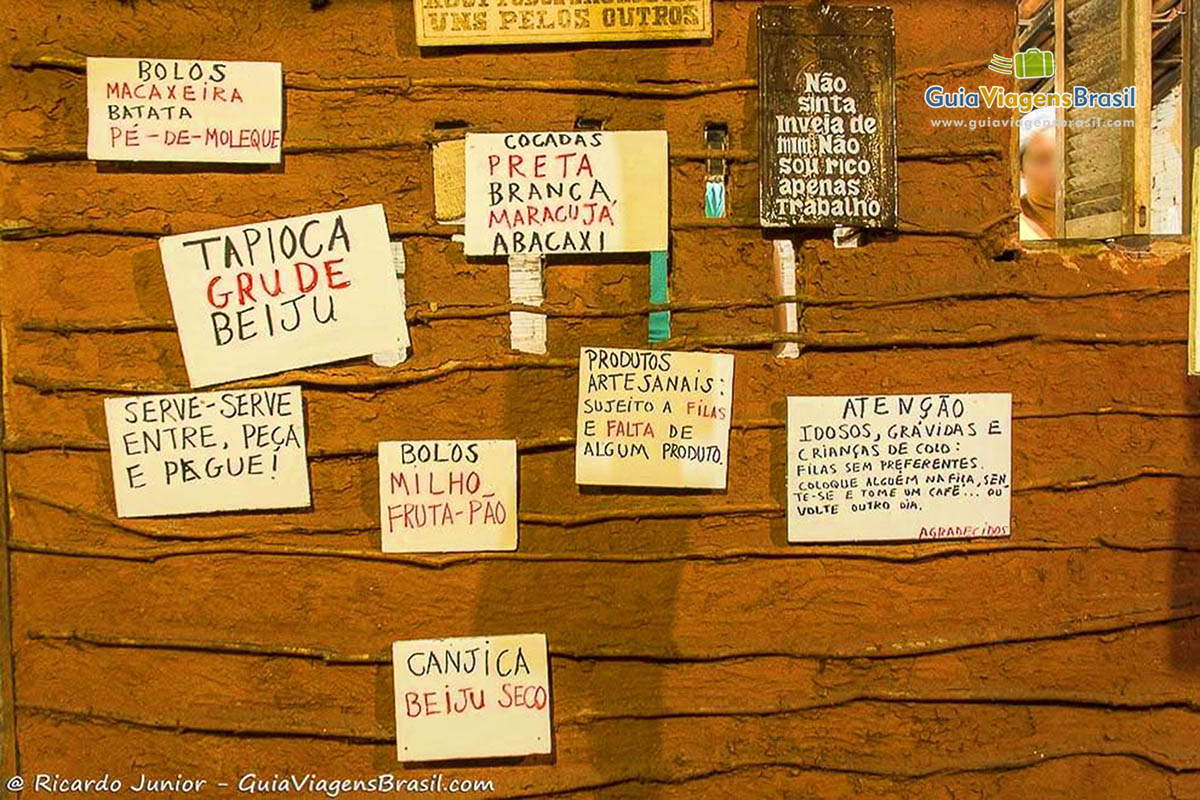 UNS PELOS OUTROS
BOLOS
MACAXEIRA
BATATA
PÉ-DE-MOLEQUE
COCADAS
PRETA
BRANCA
MARACUJÁ
ABACAXI
Não
sinta
Inveja de
mim. Não
sou rico
apenas
Trabalho
GuiaViagensBrasil
www.guiaviagensbrasil.com
TAPIOCA
GRUDE
BEIJU
SERVE-SERVE
ENTRE, PEÇA
E PAGUE!
BOLOS
MILHO
FRUTA-PÃO
PRODUTOS
ARTESANAIS:
SUJEITO A FILAS
E FALTA DE
ALGUM PRODUTO.
ATENÇÃO
IDOSOS, GRÁVIDAS E
CRIANÇAS DE COLO:
FILAS SEM PREFERENTES.
COLOQUE ALGUÉM NA FILA, SEN
TE-SE E TOME UM CAFÉ... OU
VOLTE OUTRO DIA.
AGRADECIDOS
CANJICA
BEIJU SECO
@ Ricardo Junior - GuiaViagensBrasil.com